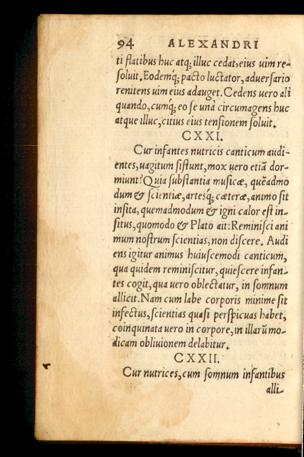 94 ALEXANDRI
ti flatibus huc atq; illuc cedat, eius uim re-
soluit. Eodemq́; pacto luctator, aduersario
renitens uim eius adauget. Cedens uero ali
quando, cumq́; eo se unà circumagens huc
atque illuc, citius eius tensionem soluit.
CXXI.
Cur infantes nutricis canticum audi-
entes, uagitum sistunt, mox uero etiã dor-
miunt? Quia substantia musicæ, quẽadmo
dum & scientiæ, artesq́; cæteræ, animo sit
insita, quemadmodum & igni calor est in-
situs, quomodo & Plato ait: Reminisci ani
mum nostrum scientias, non discere. Audi
ens igitur animus huiuscemodi canticum,
qua quidem reminiscitur, quiescere infan-
tes cogit, qua uero oblectatur, in somnum
allicit. Nam cum labe corporis minime sit
infectus, scientias quasi perspicuas habet,
coinquinata uero in corpore, in illarũ mo-
dicam obliuionem delabitur.
CXXII.
Cur nutrices, cum somnum infantibus
alli-